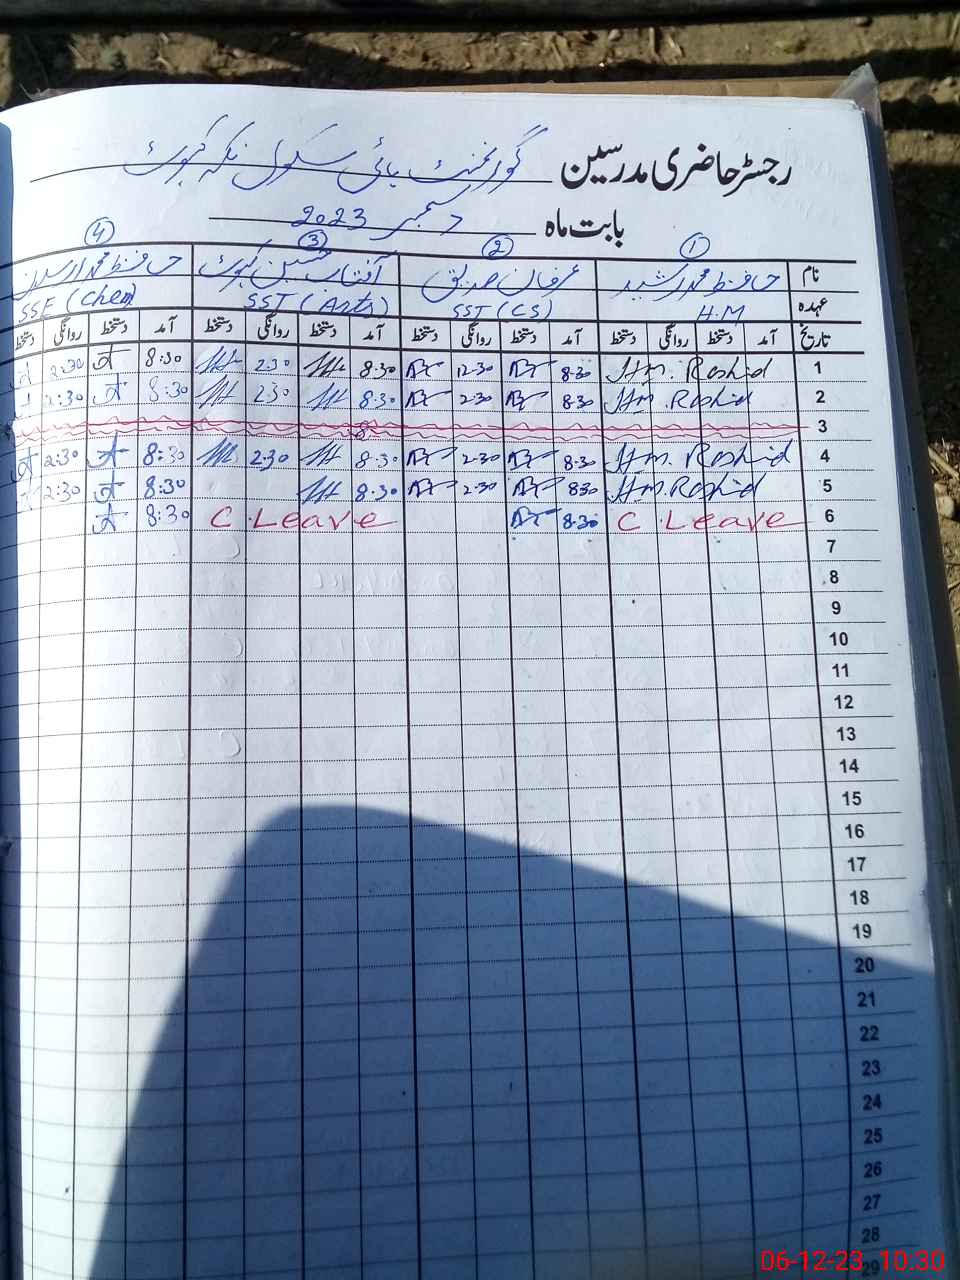 رجسٹر حاضری مدرسین گورنمنٹ ہائی سکول نکہ کہوٹ
بابت ماہ دسمبر 2023
① ② ③ ④
نام حافظ محمد رشید عرفان صدیق آفتاب حسین حافظ محمد
عہدہ H.M SST (CS) SST (Arts) SSE (Chem)
تاریخ آمد دستخط روانگی دستخط آمد دستخط روانگی دستخط آمد دستخط روانگی دستخط آمد دستخط روانگی دستخط
1 Hm. Rashid 8:30 12:30 8:30 2:30 8:30 2:30
2 Hm. Rashid 8:30 2:30 8:30 2:30 8:30 2:30
3
4 Hm. Rashid 8:30 2:30 8:30 2:30 8:30 2:30
5 Hm. Rashid 8:30 2:30 8:30 8:30 2:30
6 C Leave 8:30 C Leave 8:30
7
8
9
10
11
12
13
14
15
16
17
18
19
20
21
22
23
24
25
26
27
28
29
06-12-23 10:30